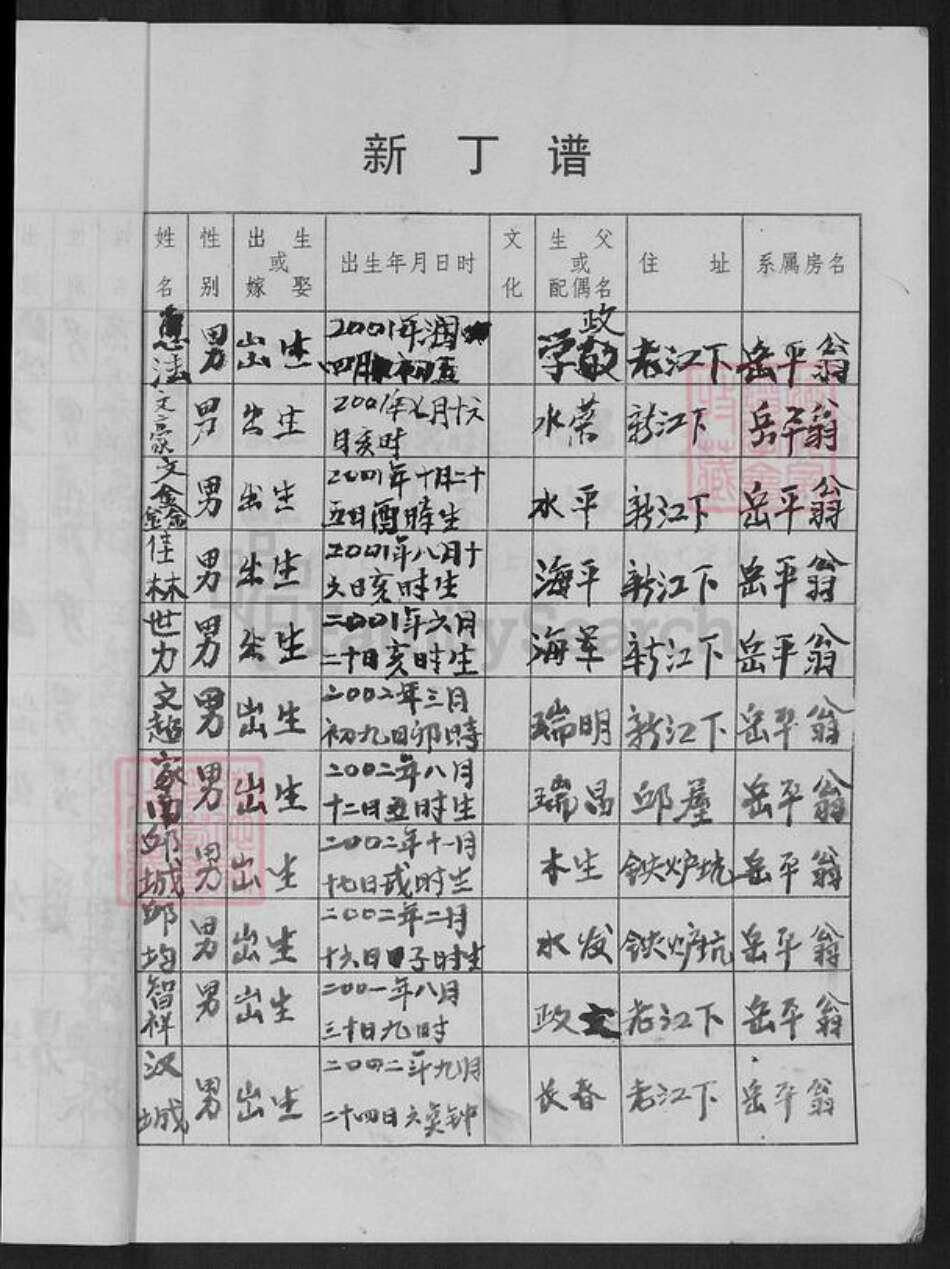 新丁谱
姓名 性别 出生或嫁娶 出生年月日时 文化 生父或配偶名 住址 系属房名
法 男 出生 2001年润四月初五 学政 老江下 岳平翁
文豪 男 出生 2001年七月十六日亥时 水荣 新江下 岳平翁
文鑫 男 出生 2001年十月二十五日酉時生 水平 新江下 岳平翁
佳林 男 出生 2001年八月十六日亥时生 海平 新江下 岳平翁
世力 男 出生 二00一年六月二十日亥时生 海军 新江下 岳平翁
文超 男 出生 二00二年三月初九日卯時 瑞明 新江下 岳平翁
家南 男 出生 二00二年八月十二日丑时生 瑞昌 邱屋 岳平翁
邱城 男 出生 二00二年十一月十七日戌时生 木生 铁炉坑 岳平翁
邱均 男 出生 二00二年二月十六日子时生 水发 铁炉坑 岳平翁
智祥 男 出生 二00一年八月三十日九时 政文 老江下 岳平翁
汉城 男 出生 二00二年九月二十四日六点钟 长春 老江下 岳平翁
FamilySearch